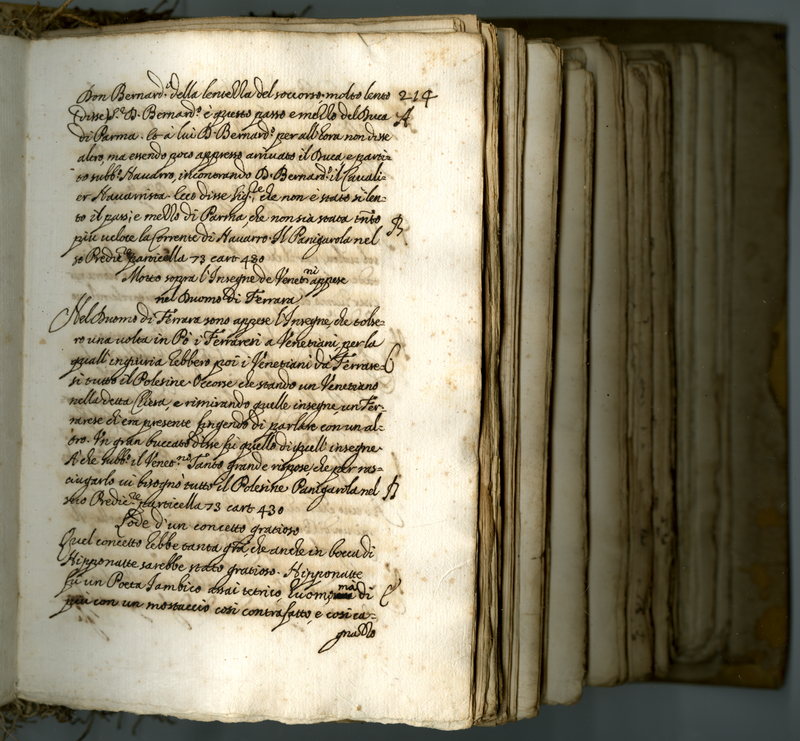 Don Bernard.º della lentezza del soccorso. molto lento 214
(disse) S.r D. Bernard.º è questo passo e mezzo del Duca A
di Parma. Et à lui D. Bernard.º per all'hora non disse
altro, ma essendo poco appresso arrivato il Duca e parti-
to subb.º Navarro, incontrando D. Bernard.º il Cavali-
er Navarrista. Ecco disse Sig.re che non è stato sì len-
to il pass; e mezzo di Parma, che non sia stata tnto
più veloce la Corrente di Navarro. Il Panigarola nel B
so Predic.re particella 73 cart 430
Motto sopra l'Insegne de Venetini appese
nel Duomo di Ferrara
Nel Duomo di Ferrara sono appese l'Insegne, che tolse-
ro una volta in Pò i Ferraresi a Venetiani, per la
quall'ingiuria hebbero poi i Venetiani da Ferrare- C
si tutto il Polesine. Occorse che stando un Venetiano
nella detta Chiesa, e rimirando quelle insegne un Fer-
rarese ch'era presente fingendo di parlare con un al-
tro. Un gran buccato disse fu quello di quell'insegne
A' che subb.º il Venet.no Tanto grande rispose, che per ras-
ciugarlo vi bisognò tutto il Polesine Panigarola nel D
suo Predic.re particella 73 cart 430
Lode d'un concetto gratioso
Quel concetto hebbe tanta gra, che anche in bocca di
Hipponatte sarebbe stato gratioso. Hipponatte
fù un Poeta Iambico assai tetrico huomo, ma di E
più con un mostaccio così contrafatto e così ca-
gnazzo